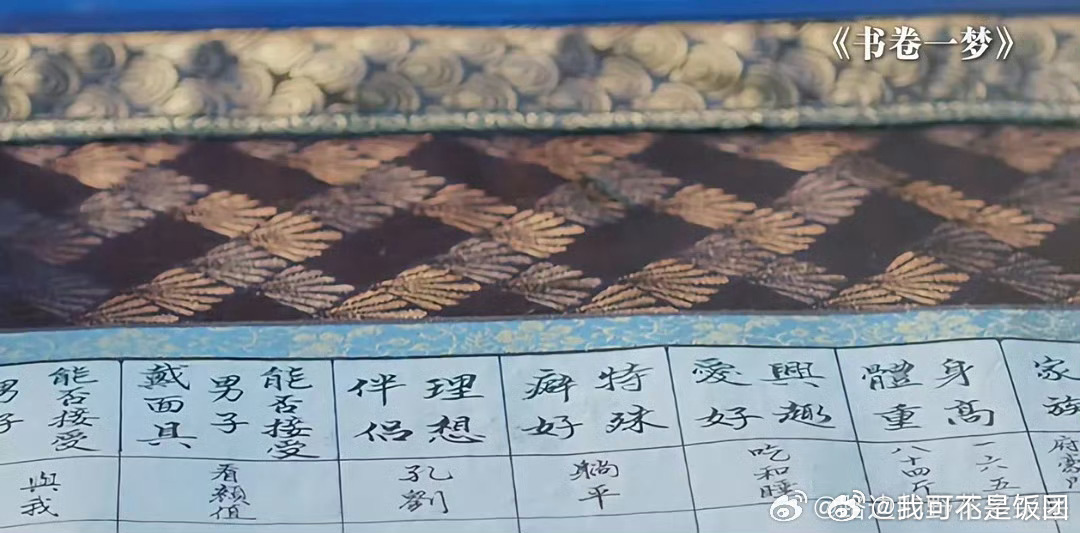 《书卷一梦》
家族
身高
體重
興趣
愛好
特殊
癖好
理想
伴侣
能否接受
男子
戴面具
能否接受
男子
一六五
八十四斤
吃和睡
躺平
孔劉
看顏值
與我
是饭团